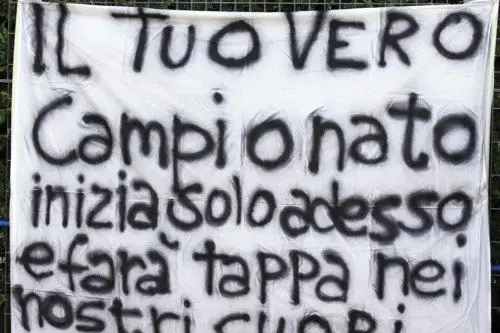 IL TUO VERO
Campionato
inizia solo adesso
e farà tappa nei
nostri cuori